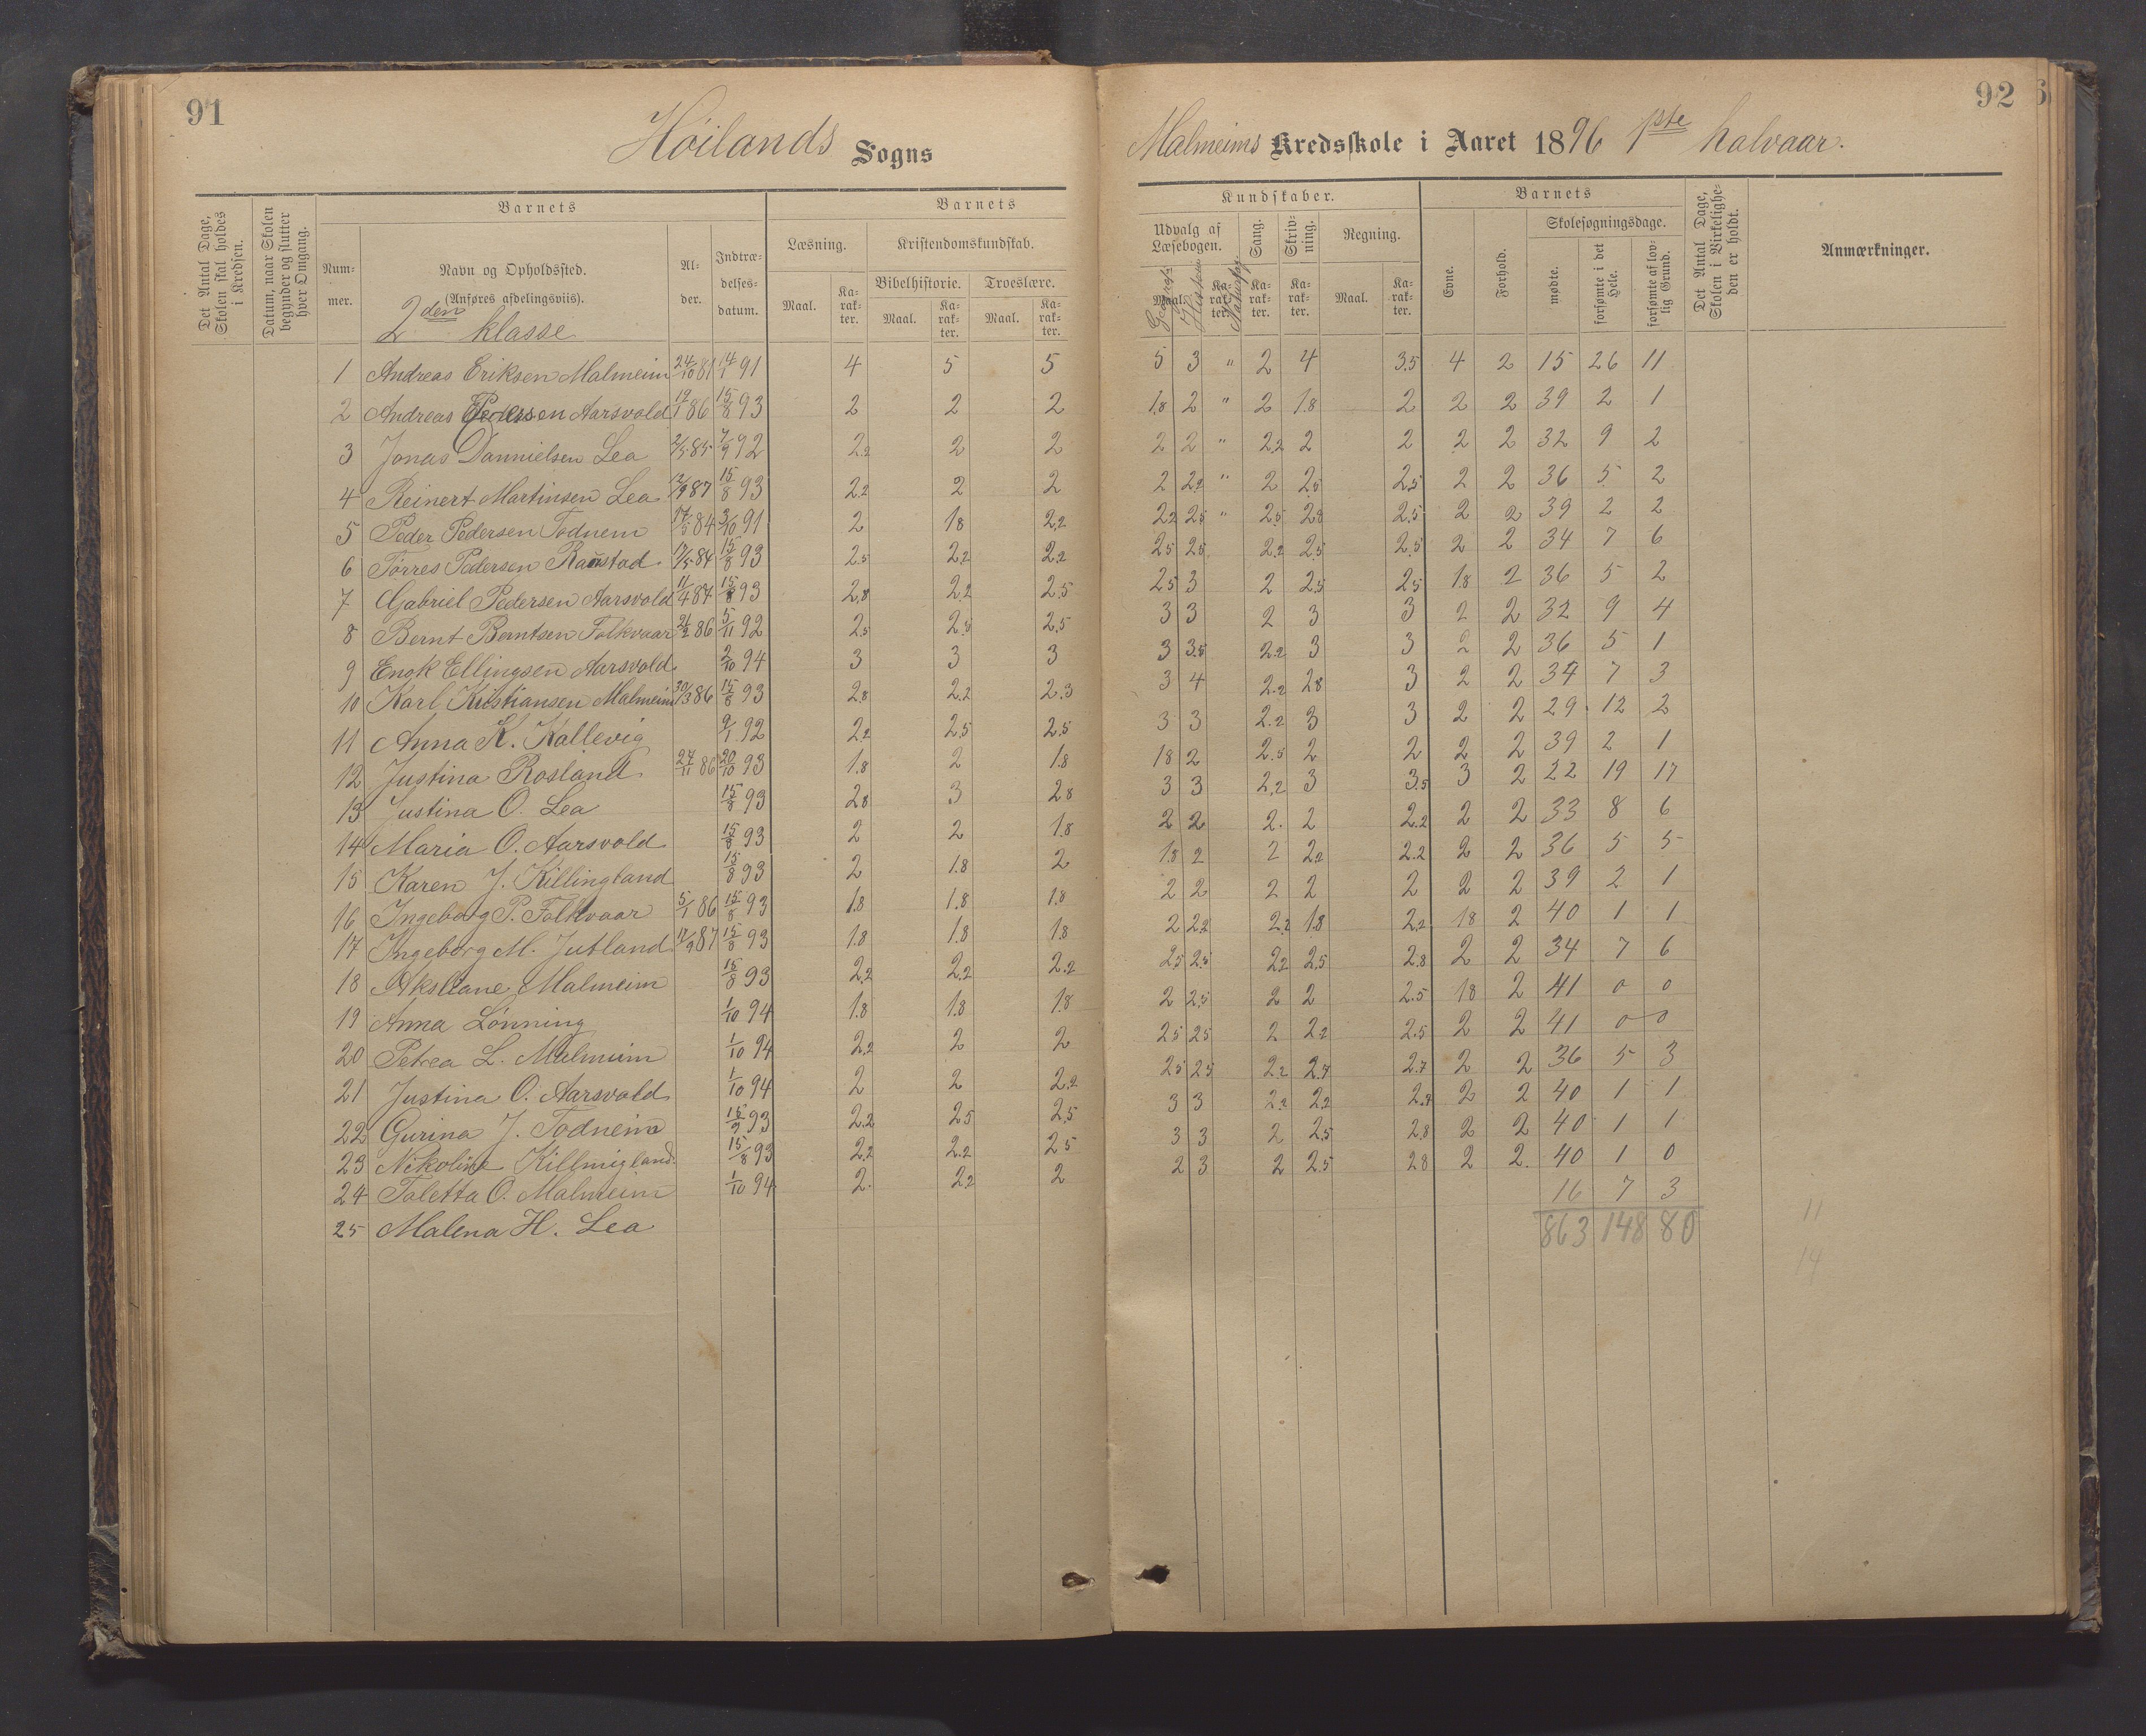 91
Höilands Sogns
Det Antal Dage, Skolen skal holdes i Kredsen.
Datum, naar Skolen begynder og slutter hver Omgang.
Barnets
Num-mer.
Navn og Opholdssted.
(Anføres afdelingsviis).
2den klasse
Al-der.
Indtræ-delses-datum.
Barnets
Læsning.
Maal.
Ka-rak-ter.
Kristendomskundskab.
Bibelhistorie.
Troeslære.
Maal.
Ka-rak-ter.
Maal.
Ka-rak-ter.
1 Andreas Eriksen Malmeim 24/10 81 14/1 91 4 5 5
2 Andreas Pedersen Aarsvold 19/1 86 15/8 93 2 2 2
3 Jonas Dannielsen Lea 2/5 85 7/9 92 2.2 2 2
4 Reinert Martinsen Lea 12/9 87 15/8 93 2.2 2 2
5 Peder Pedersen Todnem 17/5 84 3/10 91 2 1.8 2.2
6 Törres Pedersen Raustad 17/5 84 15/8 93 2.5 2.2 2.2
7 Gabriel Pedersen Aarsvold 11/4 87 15/8 93 2.8 2.2 2.5
8 Bernt Berntsen Folkvaar 21/2 86 5/11 92 2.5 2.5 2.5
9 Enok Ellingsen Aarsvold 2/10 94 3 3 3
10 Karl Kristiansen Malmeim 30/3 86 15/8 93 2.8 2.2 2.3
11 Anna K. Kallevig 9/1 92 2.2 2.5 2.5
12 Justina Rosland 27/11 86 20/10 93 1.8 2 1.8
13 Justina O. Lea 15/8 93 2.8 3 2.8
14 Maria O. Aarsvold 15/8 93 2 2 1.8
15 Karen J. Killingland 15/8 93 2 1.8 2
16 Ingeborg P. Folkvaar 5/1 86 15/8 93 1.8 1.8 1.8
17 Ingeborg M. Jutland 17/9 87 15/8 93 1.8 1.8 1.8
18 Akseliane Malmeim 15/8 93 2.2 2.2 2.2
19 Anna Lönning 1/10 94 1.8 1.8 1.8
20 Petrea L. Malmeim 1/10 94 2.2 2 2
21 Justina O. Aarsvold 1/10 94 2 2 2.2
22 Gurina J. Todneim 15/9 93 2.2 2.5 2.5
23 Nikoline Killingland 15/8 93 2.2 2.2 2.5
24 Taletta O. Malmeim 1/10 94 2. 2.2 2
25 Malena H. Lea
92
Malmeims Kredsskole i Aaret 1896 1ste halvaar.
Kundskaber.
Udvalg af Læsebogen.
Maal.
Ka-rak-ter.
Sang.
Ka-rak-ter.
Skriv-ning.
Ka-rak-ter.
Regning.
Maal.
Ka-rak-ter.
Barnets
Evne.
Forhold.
Skolesøgningsdage.
mødte.
forsømte i det Hele.
forsømte af lov-lig Grund.
Det Antal Dage, Skolen i Virkelighe-den er holdt.
Anmærkninger.
5 3 " 2 4 3.5 4 2 15 26 11
1.8 2 " 2 1.8 2 2 2 39 2 1
2 2 " 2.2 2 2 2 2 32 9 2
2 2.2 " 2 2.5 2.5 2 2 36 5 2
2.2 2.5 " 2.5 2.8 2.5 2 2 39 2 2
2.5 2.5 2.2 2.5 2.5 2 2 34 7 6
2.5 3 2 2.5 2.5 1.8 2 36 5 2
3 3 2 3 3 2 2 32 9 4
3 3.5 2.2 3 3 2 2 36 5 1
3 4 2.2 2.8 3 2 2 34 7 3
3 3 2.2 3 3 2 2 29 12 2
1.8 2 2.5 2 2 2 2 39 2 1
3 3 2.2 3 3.5 3 2 22 19 17
2 2 2. 2 2.2 2 2 33 8 6
1.8 2 2 2.2 2.2 2 2 36 5 5
2 2 2 2 2 2 2 39 2 1
2 2.2 2.2 1.8 2.2 1.8 2 40 1 1
2.5 2.5 2.2 2.5 2.8 2 2 34 7 6
2 2.5 2 2 2.5 1.8 2 41 0 0
2.5 2.5 2 2.2 2.5 2 2 41 0 0
2.5 2.5 2.2 2.7 2.7 2 2 36 5 3
3 3 2.2 2.2 2.7 2 2 40 1 1
3 3 2 2.5 2.8 2 2 40 1 1
2 3 2 2.5 2.8 2 2. 40 1 0
16 7 3
863 148 80
11
14